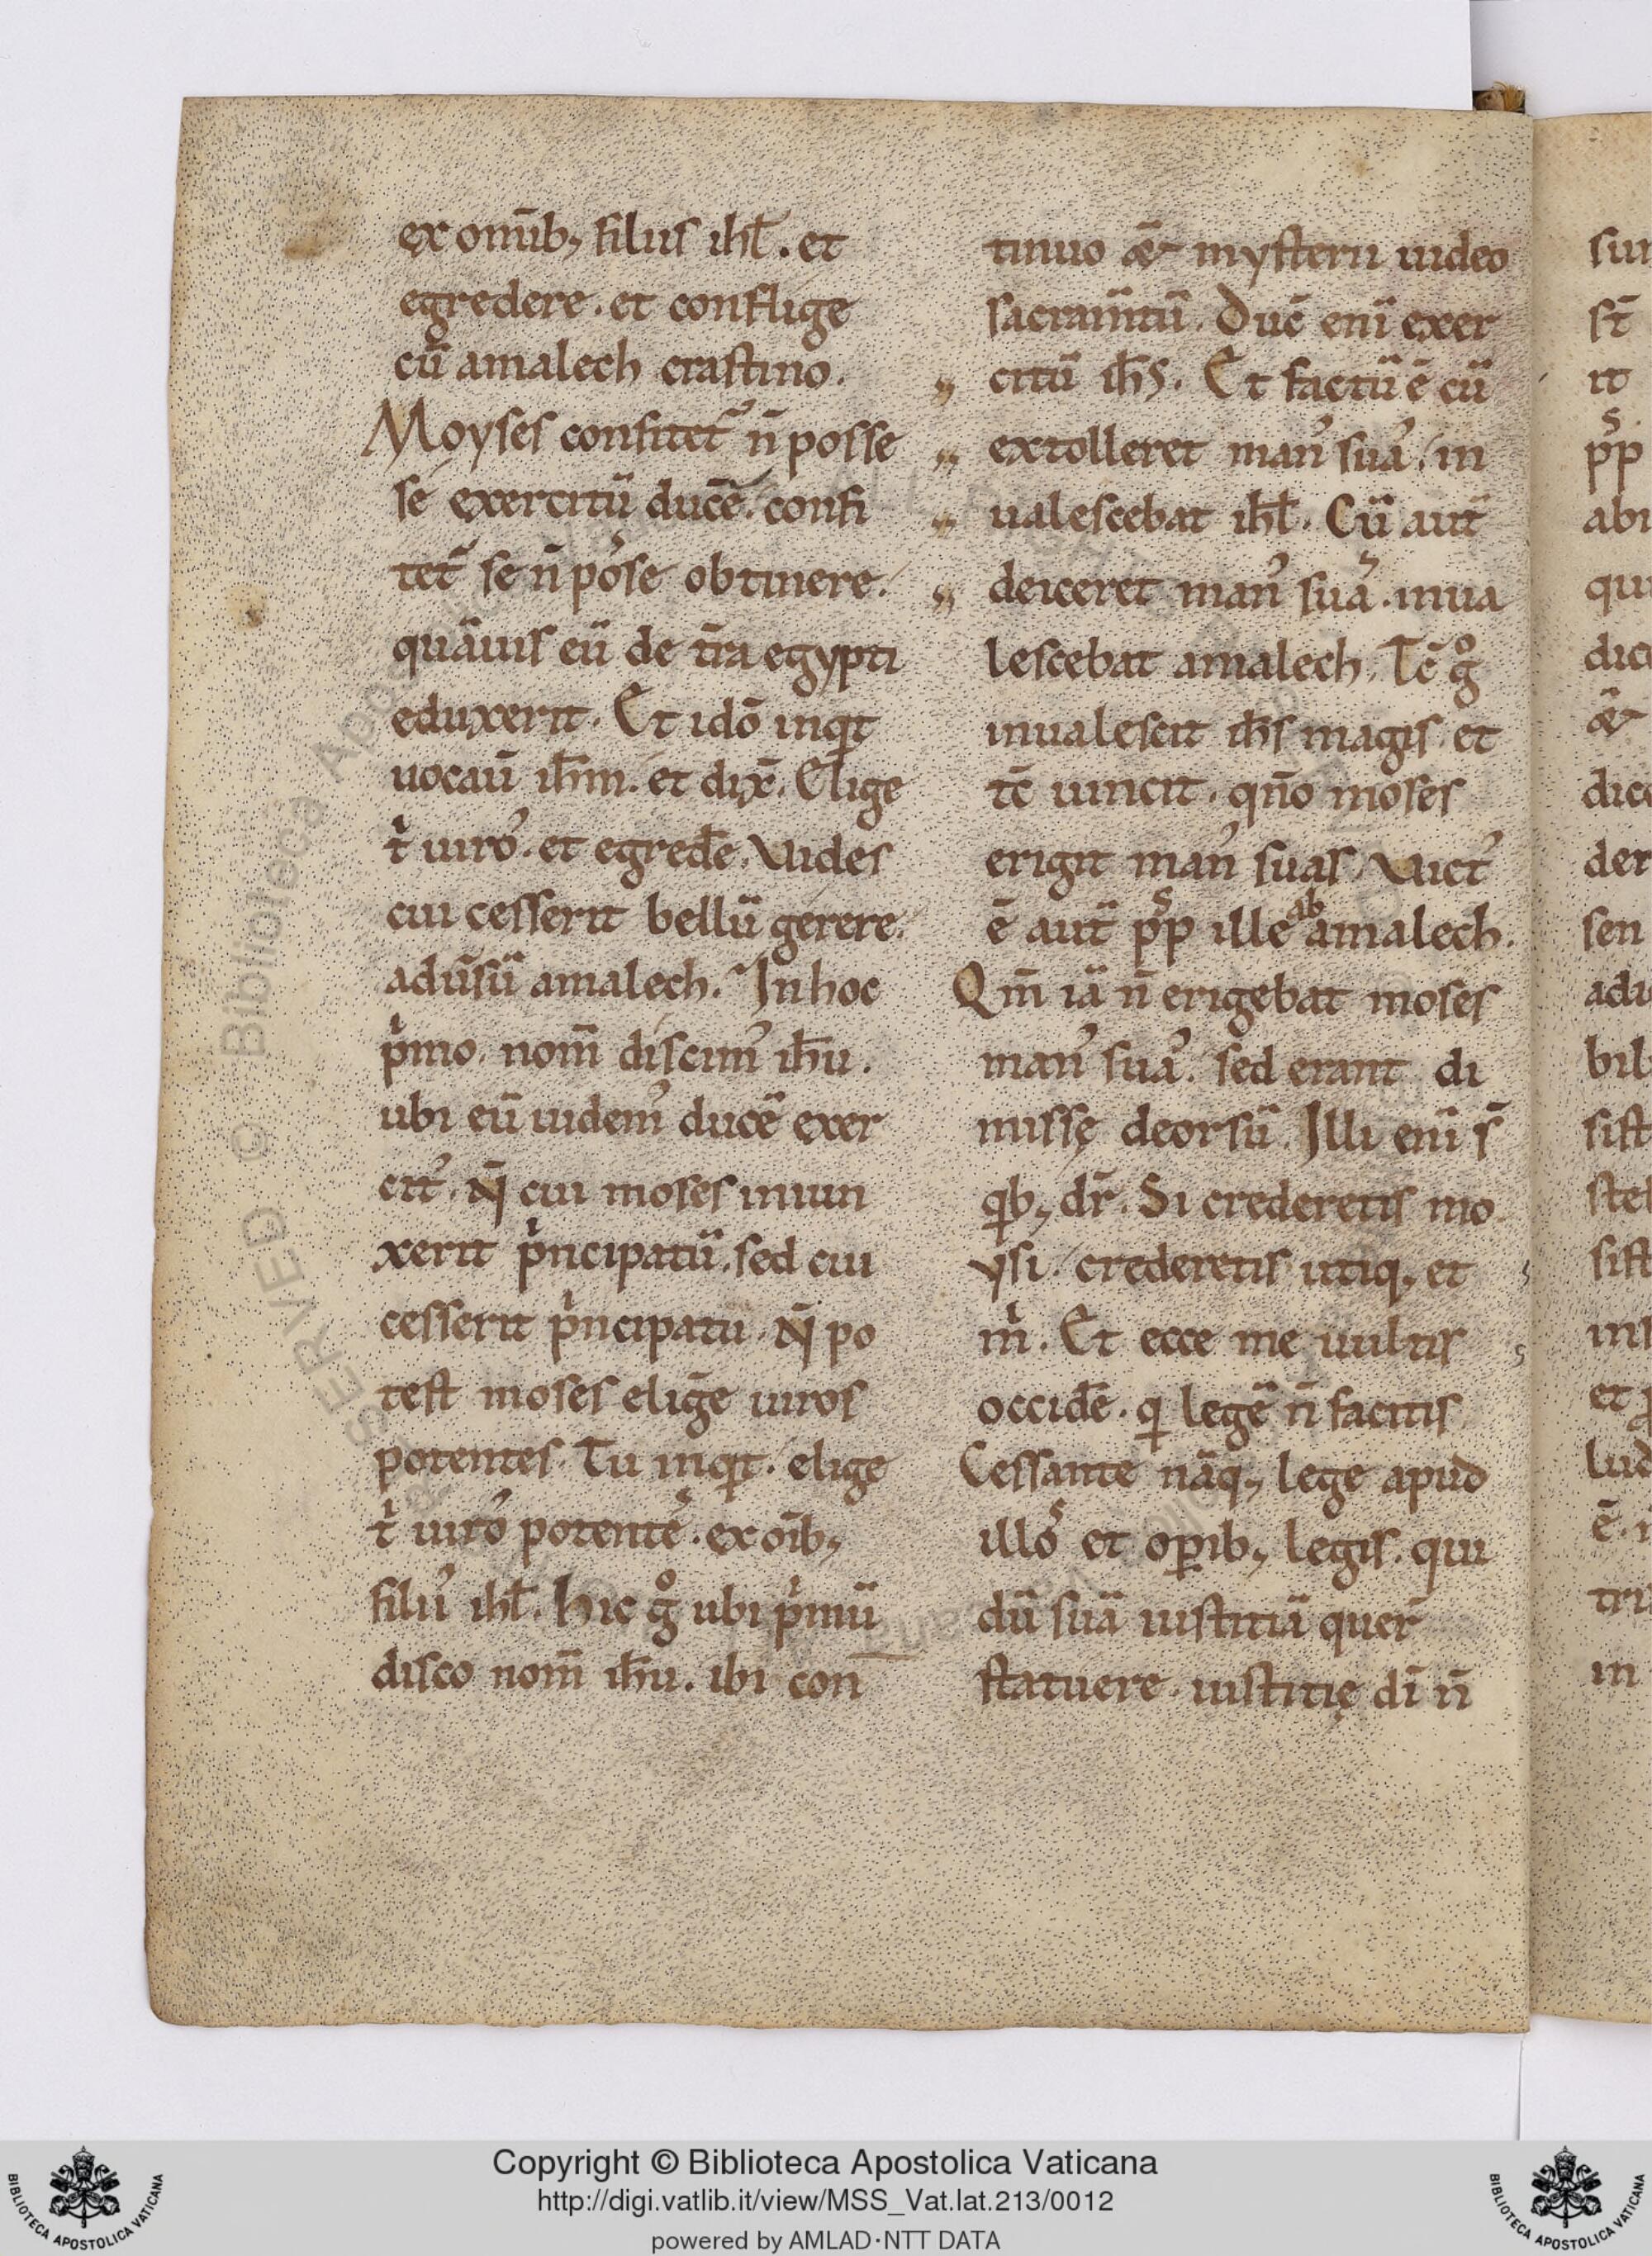 ex om̄ib; filiis ih̄l. et
egredere. et conflige
cū amalech crastino.
Moyses confitet᷑ n̄ posse
se exercitū ducē. confi
tet᷑ se n̄ posse obtinere.
quāuis eū de t̄ra egypti
eduxerit. Et idō inqͥt
uocaū ih̄m. et dix̄. Elige
tͥ uiro᾽. et egredē. Vides
cui cesserit bellū gerere.
adūsū amalech. In hoc
pͥmo nom̄ discim᾽ ih̄u.
ubi eū uidem᾽ ducē exer
cit᾽. N̄ cui moses iniun
xerit pͥncipatū. sed cui
cesserit pͥncipatū. N̄ po
test moses eligē uiros
potentes. Tu inqͥt. elige
tͥ uiro᾽ potente᾽. ex oīb;
filii᾽ ih̄l. Hic gͦ ubi pͥmū
disco nom̄ ih̄u. ibi con
tinuo &̄ mysterii uideo
sacram̄tū. Duc̄ enī exer
citū ih̄s. Et factū ē cū
extolleret man᾽ sua᾽. in
ualescebat ih̄l. Cū aut̄
deiceret man᾽ sua᾽. inua
lescebat amalech. Tc̄ gͦ
inualescit ih̄s magis et
tc̄ uincit. qn̄o moses
erigit man᾽ suas. Vict᾽
ē aut̄ pp̄ˢ ille ab amalech.
Qm̄ iā n̄ erigebat moses
man᾽ sua᾽. sed erant di
missę deorsū. Illi enī s̄
qͥb; dr̄. Si crederetis mo
ysi. crederetis utiq; et
mͥ. Et ecce me uultis
occidē. qͥ legē n̄ facitis
Cessante nāq; lege apud
illoˢ et oꝑib; legis. qui
dū suā iustitiā quer̄
statuere. iustitię dī n̄
sui
st̄
it
pp̄ˢ
abi
qui
dic
&̄
dic
der
sen
adu
bil
sist
ste
sist
in
et
lud
ē.
tri
in
© Biblioteca Apostolica Vaticana
Copyright © Biblioteca Apostolica Vaticana
http://digi.vatlib.it/view/MSS_Vat.lat.213/0012
powered by AMLAD·NTT DATA
BIBLIOTECA APOSTOLICA VATICANA
BIBLIOTECA APOSTOLICA VATICANA